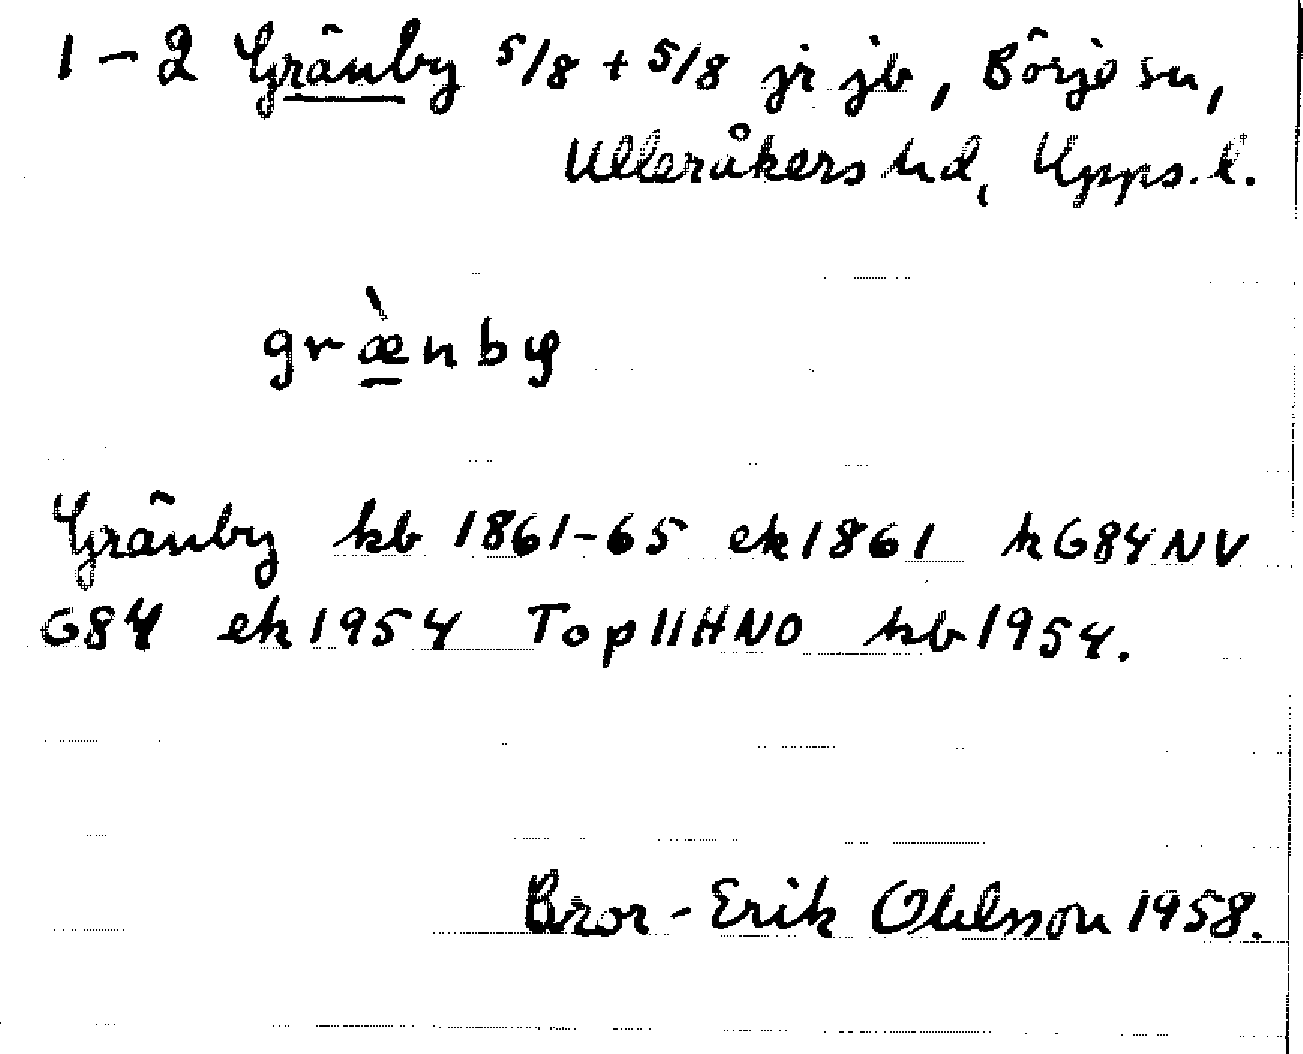 1-2 Gränby 5/8 + 5/8 jr jb, Börje sn,
Ulleråkers hd, Upps. l.
græ̀nby
Gränby kb 1861-65 ek 1861 hG84NV
G84 ek 1954 Top 11HNO kb 1954.
Bror-Erik Ohlsson 1958.